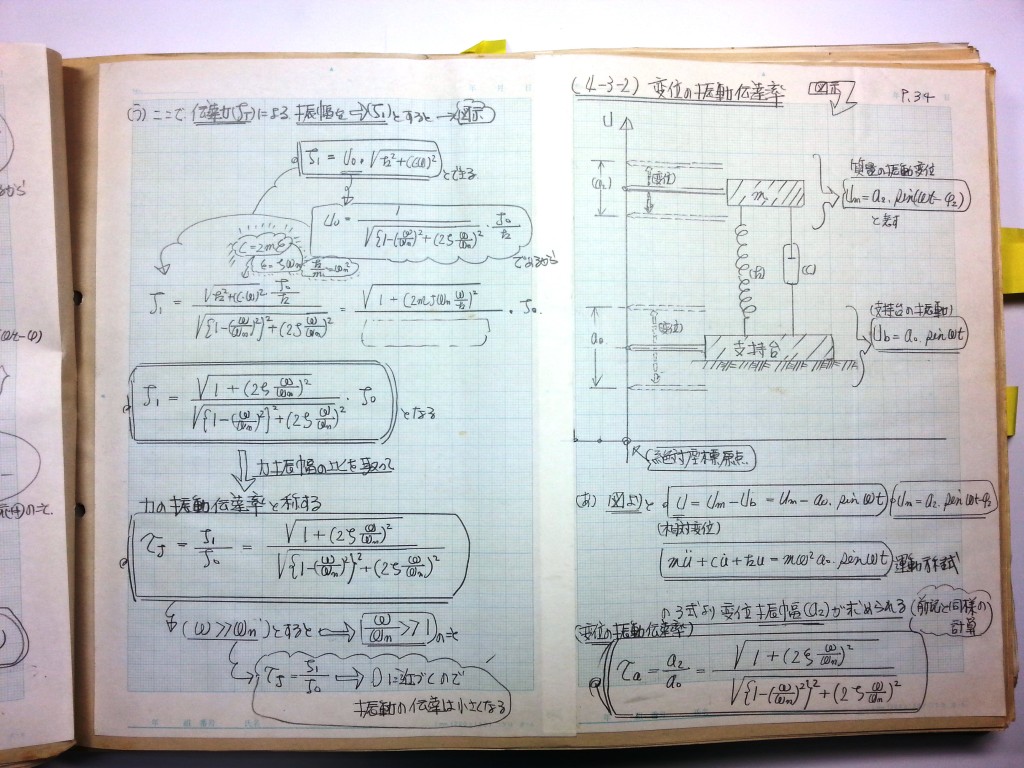 (う) ここで 伝達力(f_T)による 振幅を⇒(f₁)とすると→図示
f₁ = u₀・√k²+(cω)²
とできる
u₀ = 1/√{1-(ω/ωn)²}²+(2ζ ω/ωn)² ・ f₀/k
であるから
C=2mε
ε=ζωn
k/m=ωn²
f₁ = √k²+(c・ω)²・f₀/k / √{1-(ω/ωn)²}²+(2ζ ω/ωn)² = √1+(2mζωn ω/k)² ・ f₀
f₁ = √1+(2ζ ω/ωn)² / √{1-(ω/ωn)²}²+(2ζ ω/ωn)² ・ f₀
となる
力振幅の比を取って
力の振動伝達率と称する
τf = f₁/f₀ = √1+(2ζ ω/ωn)² / √{1-(ω/ωn)²}²+(2ζ ω/ωn)²
(ω≫ωn)とすると ⇒ ω/ωn ≫1 のとき
τf = f₁/f₀ ⇒ 0に近づくので
振動の伝達率は小さくなる
(4-3-2) 変位の振動伝達率
図示
P.34
U
(a₂)
(変位)
m
質量の振動変位
Um=a₂・sin(ωt-φ₂)
と表す
(k)
(c)
a₀
(変位)
支持台
(支持台の振動)
Ub=a₀・sinωt
絶対座標原点
(あ) 図より U = Um-Ub = Um-a₀・sinωt
Um=a₂・sin(ωt-φ₂
(相対変位)
mü+cu̇+ku=mω²a₀・sinωt 運動方程式
の3式より変位振幅(a₂)が求められる
前記と同様の
計算
(変位の振動伝達率)
τa = a₂/a₀ = √1+(2ζ ω/ωn)² / √{1-(ω/ωn)²}²+(2ζ ω/ωn)²